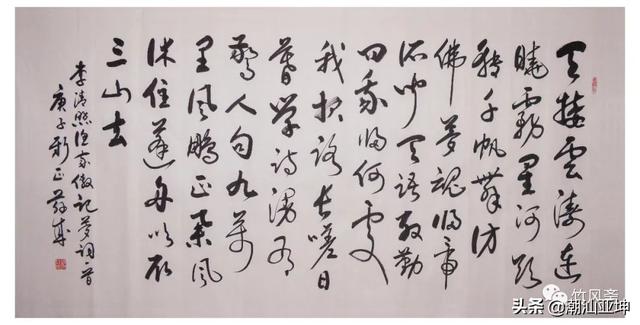 天接雲濤連
曉霧星河欲
轉千帆舞仿
佛夢魂歸帝
所聞天語殷勤
问我歸何處
我报路长嗟日
暮學诗谩有
驚人句九萬
里風鵬正举風
休住蓬舟吹取
三山去
李清照渔家傲记夢词一首
庚子新正
竹风斋
头条 @潮汕亚坤